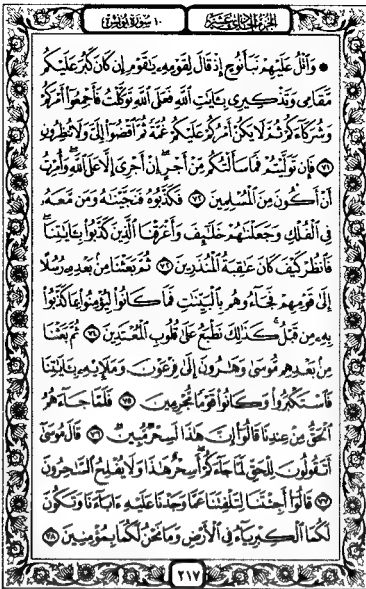 الجزء الحادي عشر
١٠ سورة يونس
۞ وَٱتۡلُ عَلَيۡهِمۡ نَبَأَ نُوحٍ إِذۡ قَالَ لِقَوۡمِهِۦ يَٰقَوۡمِ إِن كَانَ كَبُرَ عَلَيۡكُم
مَّقَامِي وَتَذۡكِيرِي بِـَٔايَٰتِ ٱللَّهِ فَعَلَى ٱللَّهِ تَوَكَّلۡتُ فَأَجۡمِعُوٓاْ أَمۡرَكُمۡ
وَشُرَكَآءَكُمۡ ثُمَّ لَا يَكُنۡ أَمۡرُكُمۡ عَلَيۡكُمۡ غُمَّةٗ ثُمَّ ٱقۡضُوٓاْ إِلَيَّ وَلَا تُنظِرُونِ
٧١ فَإِن تَوَلَّيۡتُمۡ فَمَا سَأَلۡتُكُم مِّنۡ أَجۡرٍۖ إِنۡ أَجۡرِيَ إِلَّا عَلَى ٱللَّهِۖ وَأُمِرۡتُ
أَنۡ أَكُونَ مِنَ ٱلۡمُسۡلِمِينَ ٧٢ فَكَذَّبُوهُ فَنَجَّيۡنَٰهُ وَمَن مَّعَهُۥ
فِي ٱلۡفُلۡكِ وَجَعَلۡنَٰهُمۡ خَلَٰٓئِفَ وَأَغۡرَقۡنَا ٱلَّذِينَ كَذَّبُواْ بِـَٔايَٰتِنَاۖ
فَٱنظُرۡ كَيۡفَ كَانَ عَٰقِبَةُ ٱلۡمُنذَرِينَ ٧٣ ثُمَّ بَعَثۡنَا مِنۢ بَعۡدِهِۦ رُسُلًا
إِلَىٰ قَوۡمِهِمۡ فَجَآءُوهُم بِٱلۡبَيِّنَٰتِ فَمَا كَانُواْ لِيُؤۡمِنُواْ بِمَا كَذَّبُواْ
بِهِۦ مِن قَبۡلُۚ كَذَٰلِكَ نَطۡبَعُ عَلَىٰ قُلُوبِ ٱلۡمُعۡتَدِينَ ٧٤ ثُمَّ بَعَثۡنَا
مِنۢ بَعۡدِهِم مُّوسَىٰ وَهَٰرُونَ إِلَىٰ فِرۡعَوۡنَ وَمَلَإِيْهِۦ بِـَٔايَٰتِنَا
فَٱسۡتَكۡبَرُواْ وَكَانُواْ قَوۡمٗا مُّجۡرِمِينَ ٧٥ فَلَمَّا جَآءَهُمُ
ٱلۡحَقُّ مِنۡ عِندِنَا قَالُوٓاْ إِنَّ هَٰذَا لَسِحۡرٞ مُّبِينٞ ٧٦ قَالَ مُوسَىٰٓ
أَتَقُولُونَ لِلۡحَقِّ لَمَّا جَآءَكُمۡۖ أَسِحۡرٌ هَٰذَا وَلَا يُفۡلِحُ ٱلسَّٰحِرُونَ
٧٧ قَالُوٓاْ أَجِئۡتَنَا لِتَلۡفِتَنَا عَمَّا وَجَدۡنَا عَلَيۡهِ ءَابَآءَنَا وَتَكُونَ
لَكُمَا ٱلۡكِبۡرِيَآءُ فِي ٱلۡأَرۡضِ وَمَا نَحۡنُ لَكُمَا بِمُؤۡمِنِينَ ٧٨
٢١٧